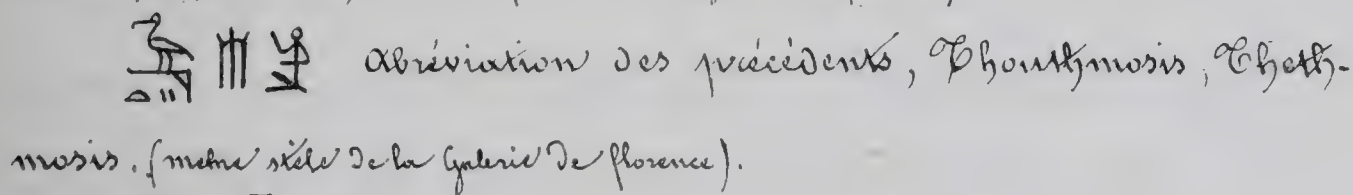 𓅝𓏏𓏭𓄟𓀗 abréviation des précédents, Thouthmosis, Thoth-
mosis. (même stèle de la Galerie de florence).